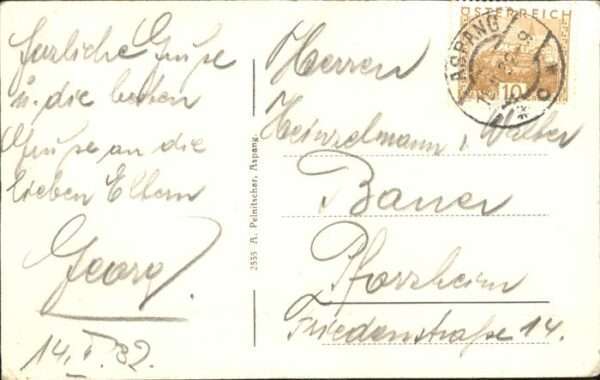 Herzliche Grüße
u. die besten
Grüße an die
lieben Eltern
Georg
14. I. 32.
2555 A. Pelnitschar, Aspang.
ÖSTERREICH
10
ASPANG
Herren
Heinzelmann, Walter
Bauer
Pforzheim
Friedenstraße 14.